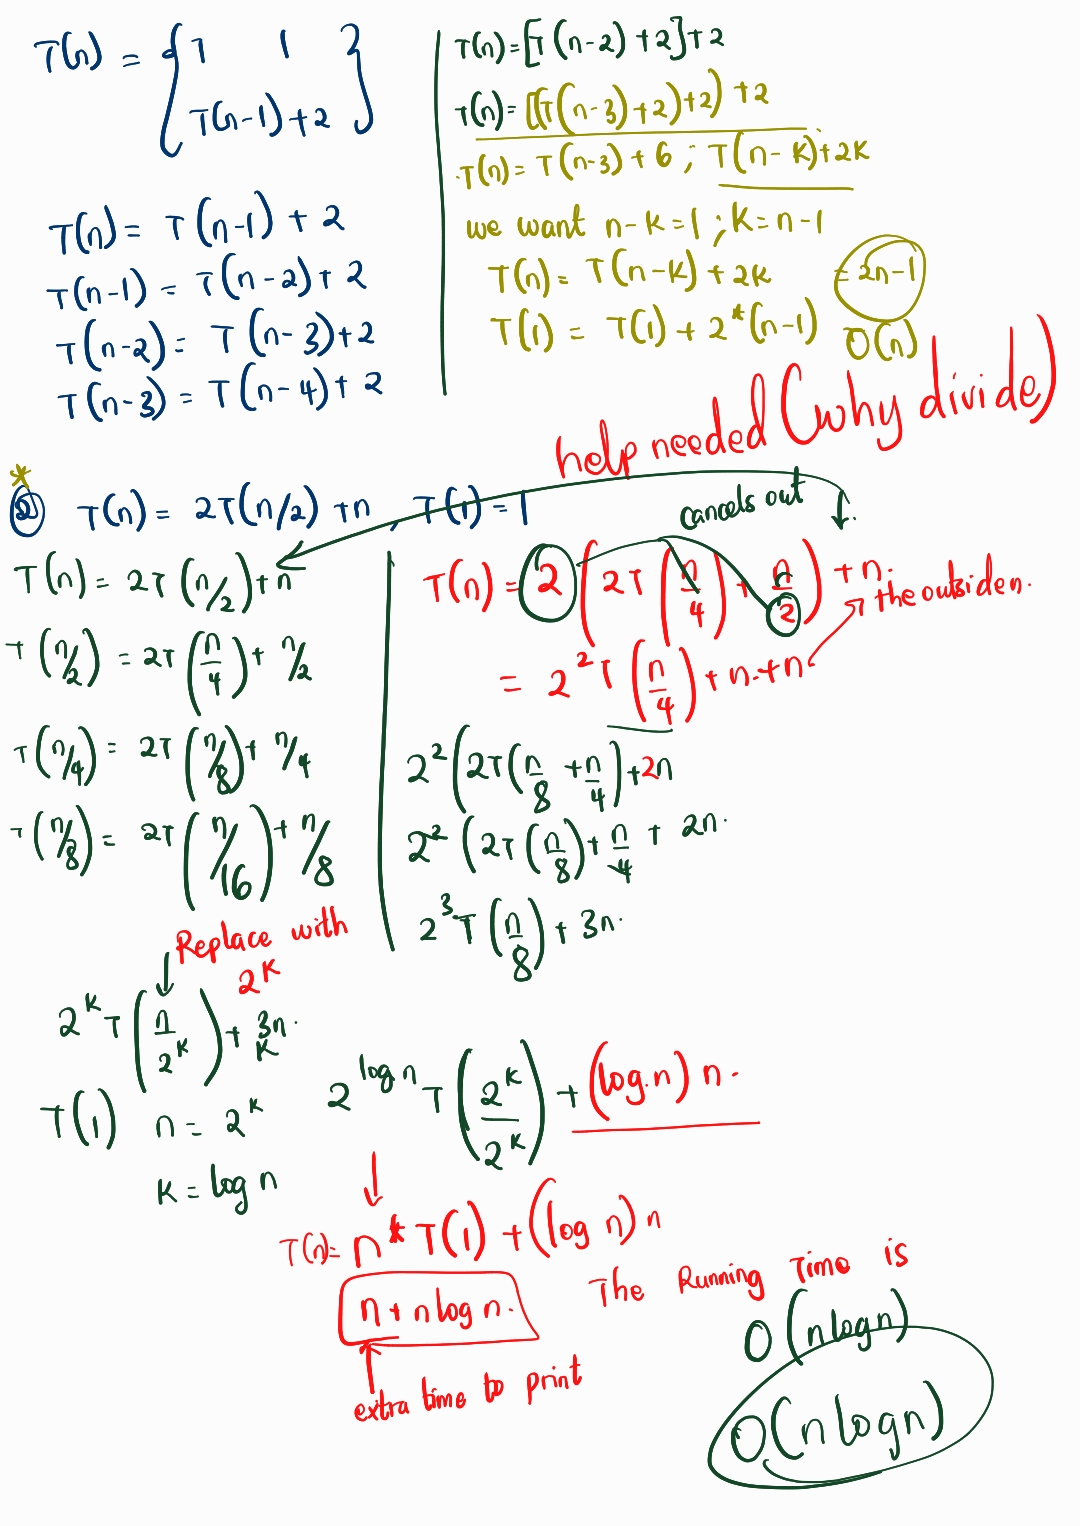 T(n) = { 1     1 }
T(n-1)+2
T(n) = T(n-1) + 2
T(n-1) = T(n-2)+ 2
T(n-2) = T(n-3)+2
T(n-3) = T(n-4)+ 2
T(n)=[T(n-2)+2]+2
T(n)= [(T(n-3)+2)+2) +2
T(n)= T(n-3)+6 ; T(n-K)+2K
we want n-k=1 ; K=n-1
T(n)= T(n-K)+2K = 2n-1
T(1) = T(1) + 2*(n-1) O(n)
help needed (why divide)
* 2 T(n) = 2T(n/2) +n , T(1)=1
T(n) = 2T (n/2)+n
T(n/2) = 2T(n/4)+ n/2
T(n/4) = 2T(n/8)+ n/4
T(n/8) = 2T(n/16)+ n/8
cancels out
T(n) = 2 (2T (n/4) + n/2) + n.
the outside n.
= 2² T (n/4) + n.+n
2² (2T(n/8 + n/4)+2n
2² (2T(n/8)+ n/4 + 2n.
2³ T (n/8) + 3n.
Replace with
2^K
2^K T (n/2^K) + 3n.
K
T(1) n = 2^K
K = log n
2^log n T (2^K/2^K) + (log.n) n.
T(n)= n* T(1) + (log n) n
n + n log n.
extra time to print
The Running Time is
O (n log n)
O(n log n)